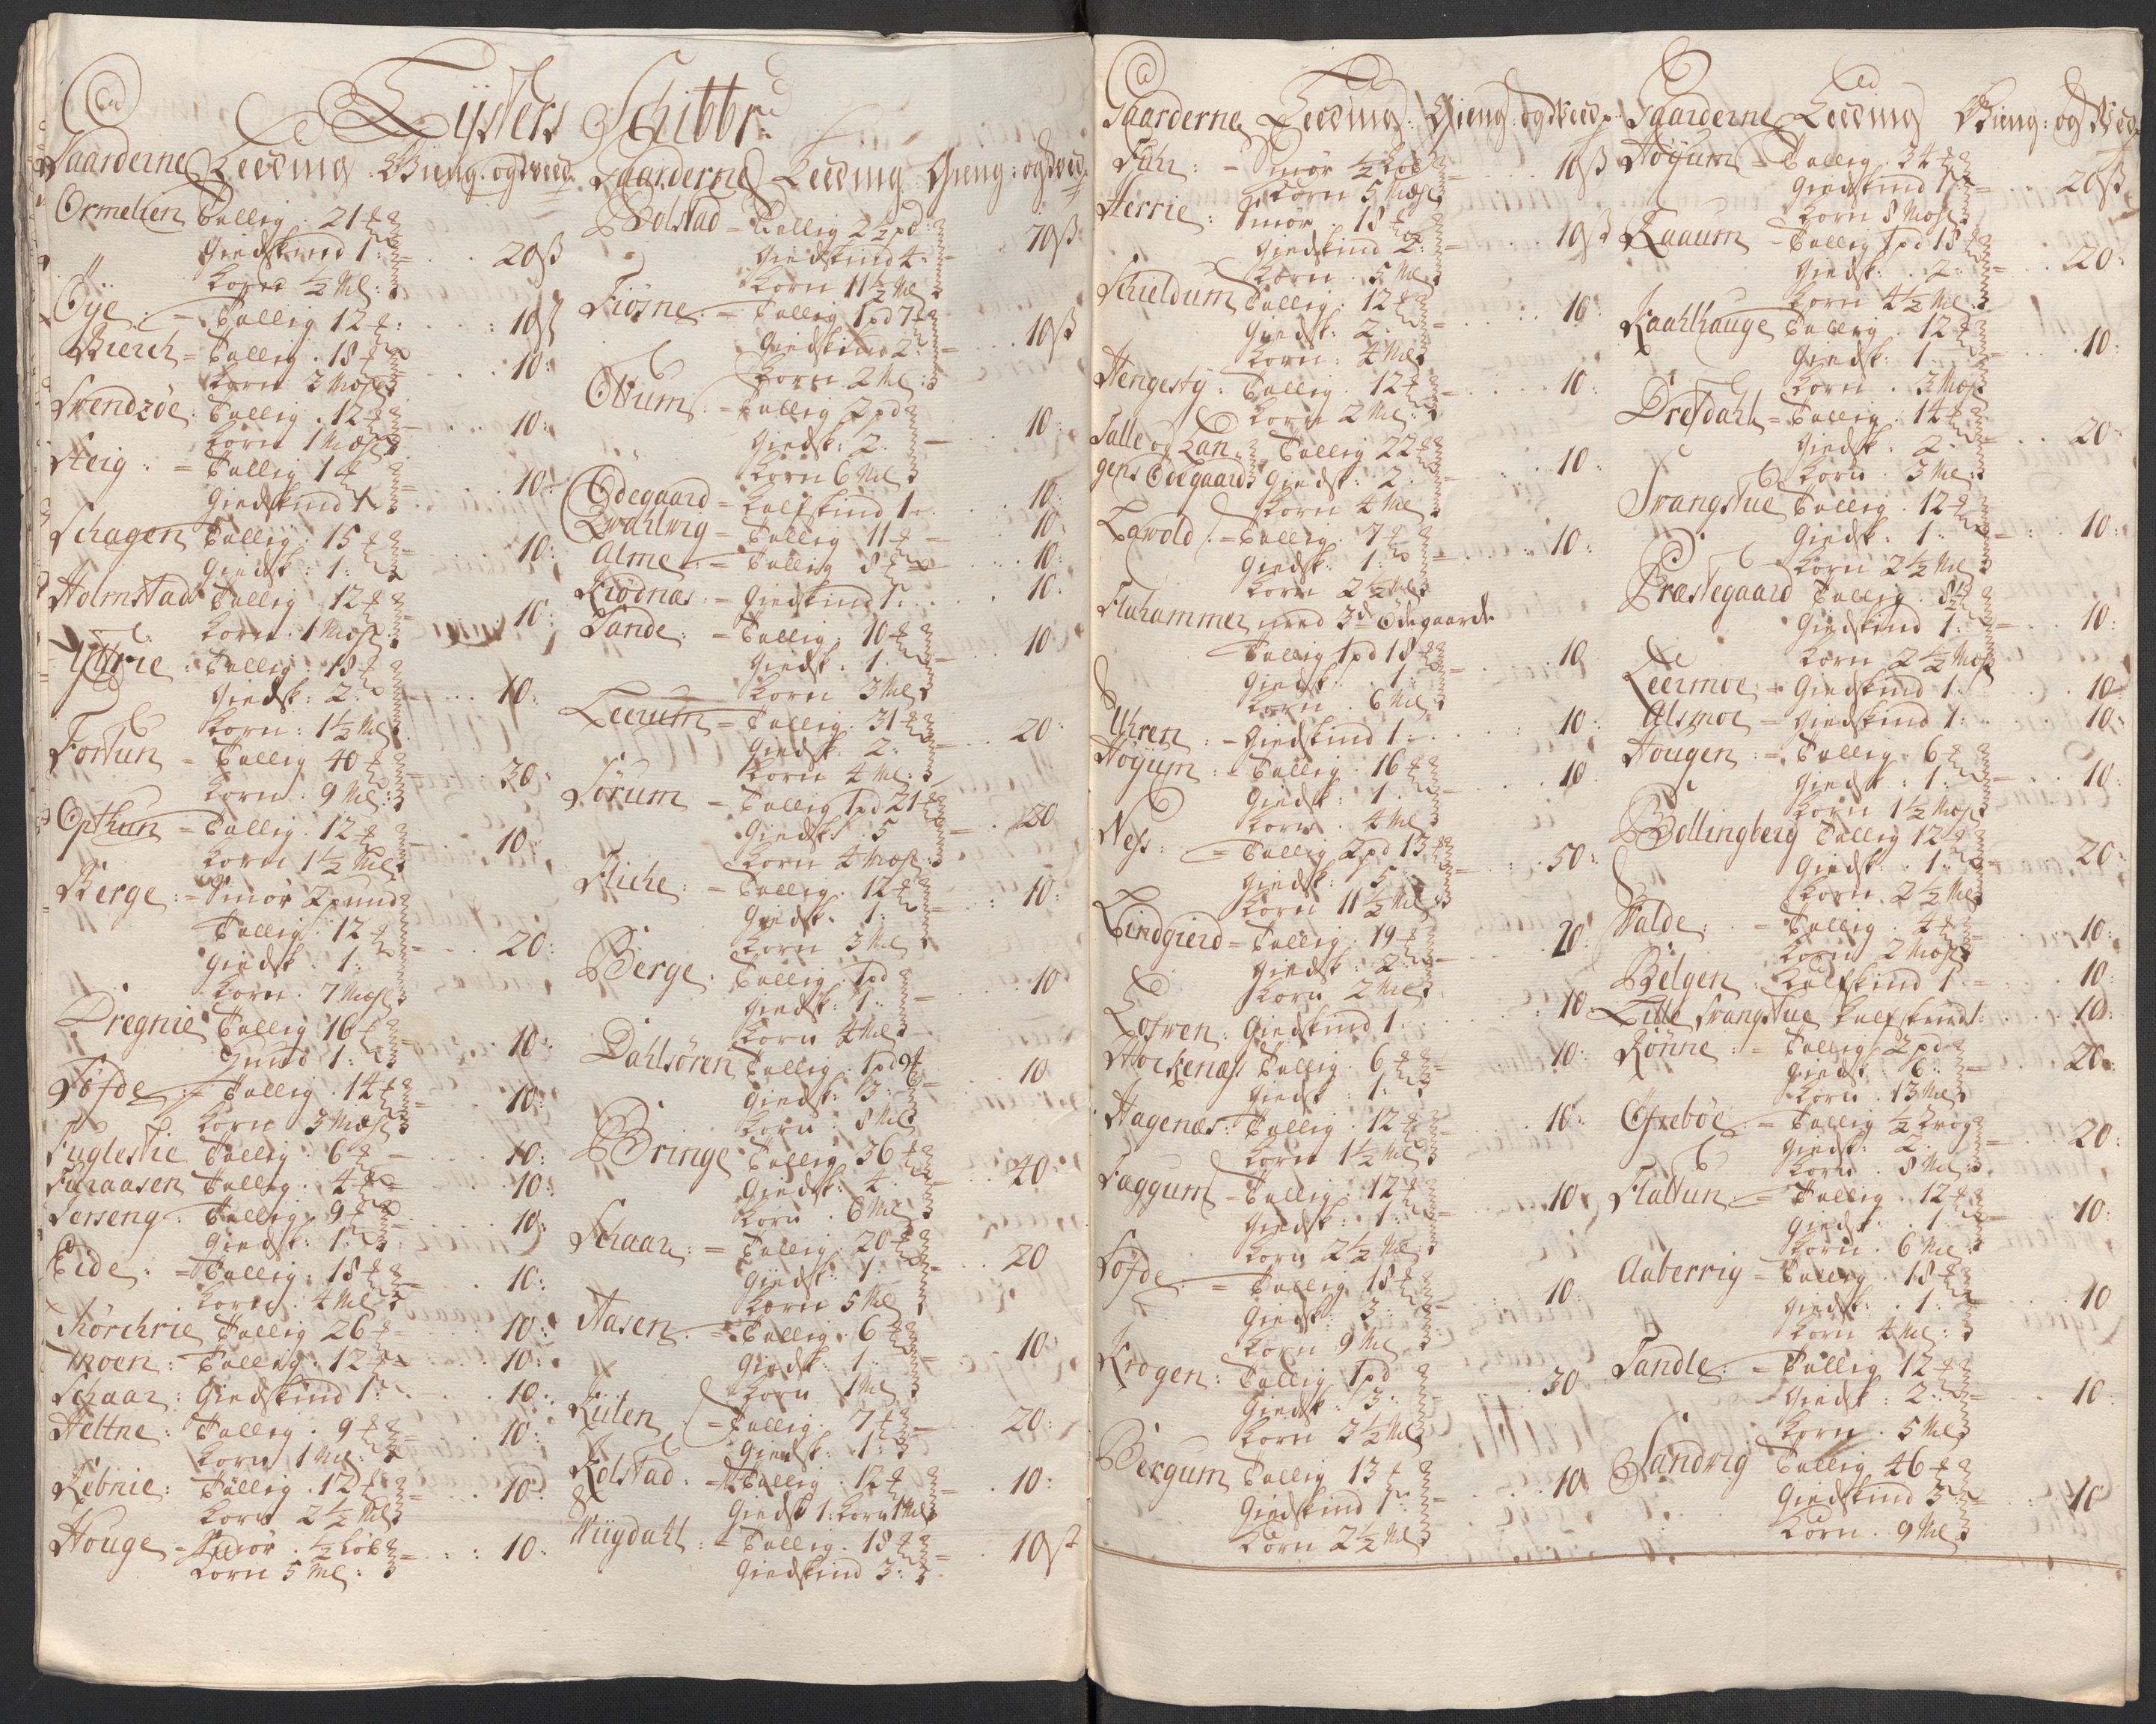 Lÿsters Schibbr:
Gaarderne Leeding Gieng: og dreed
Ormelien Tallig 21 ℔
Giedskind 1: 20ß
Korn ½ Ml:
Øÿe: = Tallig 12 ℔: 10ß
Bierch = Tallig 18 ℔
Korn 3 Mæl: 10:
Svendzøe: Tallig 12 ℔
Korn 1 Mæl: 10:
Steig: = Tallig 1 ℔
Giedskind 1 10:
Schagen Tallig 15 ℔
Giedsk: 1: 10:
Holmstad Tallig 12 ℔
Korn 1 Mæl: 10:
Ÿttrie: Tallig 18 ℔
Giedsk: 2: 10:
Korn: 1½ Ml
Fortun = Tallig 40 ℔
Korn 9 Ml: 30:
Opthun = Tallig 12 ℔
Korn 1½ Ml 10:
Berge: = Smör 2 pund
Tallig 12 ℔
Giedsk: 1: 20:
Korn 7 Mæl
Dregnie Tallig 16 ℔
Huud 1: 10:
Søfde: = Tallig 14 ℔
Korn 3 Mæl 10:
Fuglestie Tallig 6 ℔ 10:
Furaasen Tallig 4 ℔ 10:
Serseng: Tallig 9 ℔
Giedsk: 1: 10:
Eide: = Tallig 18 ℔
Korn 4 Ml 10:
Thörchrie Tallig 26 ℔ 10:
Moen: = Tallig 12 ℔ 10:
Schaar: Giedskind 1: 10:
Heltne: Tallig 9 ℔
Korn 1 Ml: 10:
Kebnie: Tallig 12 ℔
Korn 2½ Ml 10:
Houge = Smör ½ Løb
Korn 5 Ml: 10:
Gaarderne Leeding Gieng: og dreed
Bolstad = Tallig 2½ pd
Giedskind 4: 70ß
Korn 11½ Ml
Fiösne: = Tallig 1 pd 7 ℔
Giedskind 2: 10ß
Korn 2 Ml:
Ottum: = Tallig 2 pd
Giedsk: 2: 10:
Korn 6 Ml
Ödegaard = Kalfskind 1: 10:
Qvahlwig = Tallig 11 ℔ 10:
Alme: = Tallig 8 ℔ 10:
Kiödnas: = Giedskind 1: 10:
Sande: = Tallig 10 ℔
Giedsk: 1: 10:
Korn 3 Ml
Leerum = Tallig 31 ℔
Giedsk: 2: 20:
Korn 4 Ml:
Sörum = Tallig 1 pd 21 ℔
Giedsk: 5 20
Korn 4 Mæl:
Fliche: = Tallig 12 ℔
Giedsk: 1: 10:
Korn 3 Ml
Berge: Tallig 1 pd
Giedsk: 1: 10
Korn 4 Ml
Dahlsören Tallig 1 pd 9 ℔
Giedsk: 3: 10
Korn 8 Ml
Bringe Tallig 36 ℔
Giedsk: 4: 40:
Korn 6 Ml
Schaar: = Tallig 20 ℔
Giedsk: 1: 20
Korn 5 Ml
Aasen: = Tallig 6 ℔
Giedsk: 1: 10:
Korn 1 Ml
Kulen: = Tallig 7 ℔
Giedsk: 1: 20:
Kolstad: = Tallig 12 ℔
Giedsk 1: Korn 1 Ml 10:
Wiigdahl: = Tallig 18 ℔
Giedskind 3: 10ß
Gaarderne Leeding Gieng: og dreed
Fuhr: = Smör ½ Løb
Korn 5 Mæl 10ß
Herrie: Smör 18 ℔
Giedskind 2: 10ß
Korn 5 Ml
Schieldum Tallig 12 ℔
Giedsk: 2: 10:
Korn: 4 Ml
Hengestÿ: Tallig 12 ℔
Korn 2 Ml: 10:
Talle og Lan= Tallig 22 ℔
gens Ödegaard Giedsk: 2: 10:
Korn 4 Ml
Lavold: = Tallig 7 ℔
Giedsk: 1: 10:
Korn 2½ Ml
Flahammer med 3de Ödegaarde
Tallig 1 pd 18 ℔
Giedsk: 1: 10
Korn 6 Ml
Uhren: = Giedskind 1: 10:
Höÿum: = Tallig 16 ℔
Giedsk: 1: 10:
Korn 4 Ml
Ness: = Tallig 2 pd 13 ℔
Giedsk: 5: 50:
Korn 11½ Ml
Lindgierd = Tallig 19 ℔
Giedsk: 2: 20:
Korn 2 Ml
Lofven: Giedskind 1: 10:
Hockenæs Tallig 6 ℔
Giedsk: 1: 10:
Hagenæs: Tallig 12 ℔
Korn 1½ Ml 10:
Faggum = Tallig 12 ℔
Giedsk: 1: 10:
Korn 2½ Ml:
Søfde: = Tallig 18 ℔
Giedsk: 3: 10:
Korn 9 Ml
Krogen: Tallig 1 pd
Giedsk: 3: 30
Korn 3½ Ml
Bergum Tallig 13 ℔
Giedskind 1: 10
Korn 2½ Ml
Gaarderne Leeding Gieng: og dreed
Höÿum = Tallig 34 ℔
Giedskind 1 20ß
Korn 8 Mæl
Raaum = Tallig 1 pd 18 ℔
Giedsk: 2: 20:
Korn 4½ Ml
Kaahlhauge Tallig 12 ℔
Giedsk: 1: 10:
Korn 3 Mæl
Drefdahl = Tallig 14 ℔
Giedsk: 2: 20:
Korn 3 Ml:
Trangstue Tallig 12 ℔
Giedsk: 1: 10:
Korn 2½ Ml
Præstegaard Tallig 8½ ℔
Giedskind 1: 10:
Korn 2½ Mæl
Leermoe: = Giedskind 1: 10
Alsmoe = Giedskind 1: 10:
Hougen: = Tallig 6 ℔
Giedsk: 1: 10:
Korn 1½ Mæl
Bollingberg Tallig 12 ℔
Giedsk: 1: 20:
Korn 2½ Ml
Walde: = Tallig 4 ℔
Korn 2 Mæl 10:
Bölgen: Kalfskind 1 10:
Lille Trangstue Kalfskind 1: 10:
Rönne: = Tallig 2 pd
Giedsk: 6: 20:
Korn 13 Ml
Ofrebøe: = Tallig ½ Vog
Giedsk: 2: 20:
Korn 8 Ml
Flattun = Tallig 12 ℔
Giedsk: 1: 10:
Korn 6 Ml:
Aaberrig = Tallig 18 ℔
Giedsk: 1: 10
Korn 4 Ml:
Sandle: = Tallig 12 ℔
Giedsk: 2: 10:
Korn 5 Ml
Sandvig Tallig 46 ℔
Giedskind 3: 10
Korn 9 Ml